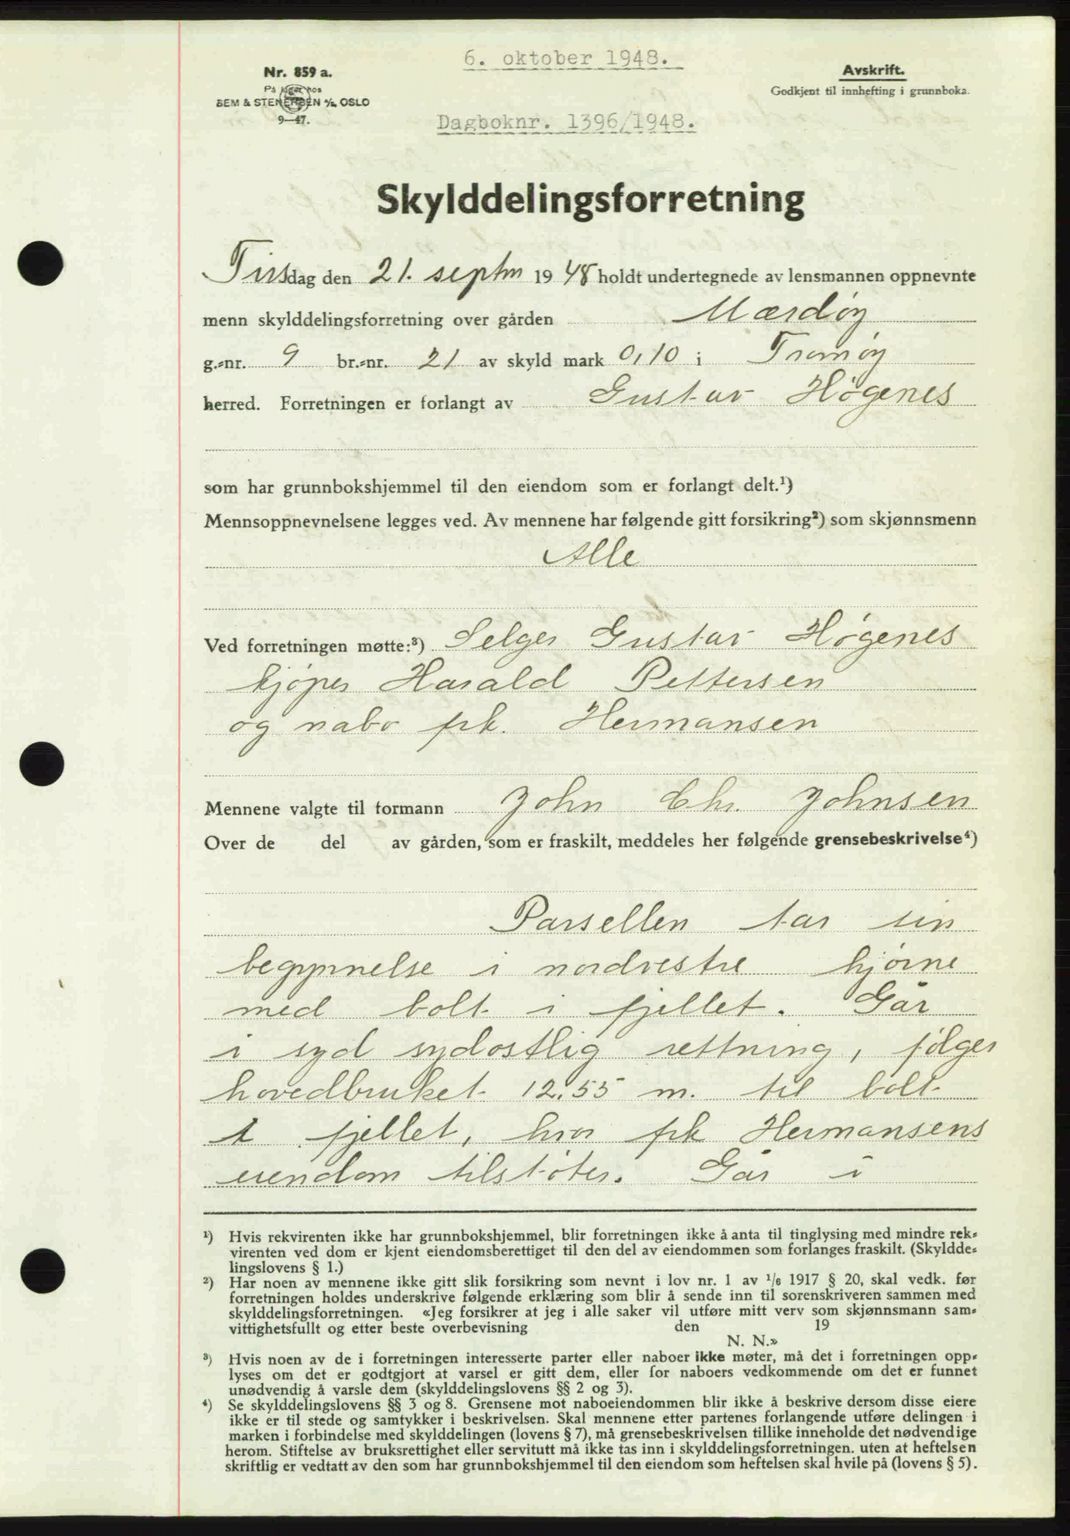 6. oktober 1948.
Nr. 859 a.
På lager hos
SEM & STENERSEN A/S, OSLO
9—47.
Avskrift.
Godkjent til innhefting i grunnboka.
Dagboknr. 1396/1948.
Skylddelingsforretning
Tirsdag den 21. septm 1948 holdt undertegnede av lensmannen oppnevnte
menn skylddelingsforretning over gården Mærdøy
g.-nr. 9 br.-nr. 21 av skyld mark 0,10 i Tromøy
herred. Forretningen er forlangt av Gustav Høgenes
som har grunnbokshjemmel til den eiendom som er forlangt delt.¹)
Mennsoppnevnelsene legges ved. Av mennene har følgende gitt forsikring²) som skjønnsmenn
Alle
Ved forretningen møtte:³) Selger Gustav Høgenes
kjøper Harald Pettersen
og nabo frk. Hermansen
Mennene valgte til formann John Chr. Johnsen
Over de del av gården, som er fraskilt, meddeles her følgende grensebeskrivelse⁴)
Parsellen tar sin
begynnelse i nordvestre hjørne
med bolt i fjellet. Går
i syd sydostlig rettning, følger
hovedbruket 12,55 m. til bolt
i fjellet, hvor frk Hermansens
eiendom tilstøter. Går i
¹) Hvis rekvirenten ikke har grunnbokshjemmel, blir forretningen ikke å anta til tinglysing med mindre rek-
virenten ved dom er kjent eiendomsberettiget til den del av eiendommen som forlanges fraskilt. (Skyldde-
lingslovens § 1.)
²) Har noen av mennene ikke gitt slik forsikring som nevnt i lov nr. 1 av ¹/₆ 1917 § 20, skal vedk. før
forretningen holdes underskrive følgende erklæring som blir å sende inn til sorenskriveren sammen med
skylddelingsforretningen. «Jeg forsikrer at jeg i alle saker vil utføre mitt verv som skjønnsmann sam-
vittighetsfullt og etter beste overbevisning den 19
N. N.»
³) Hvis noen av de i forretningen interesserte parter eller naboer ikke møter, må det i forretningen opp-
lyses om det er godtgjort at varsel er gitt dem, eller for naboers vedkommende om det er funnet
unødvendig å varsle dem (skylddelingslovens §§ 2 og 3).
⁴) Se skylddelingslovens §§ 3 og 8. Grensene mot naboeiendommen blir ikke å beskrive dersom disse eiere
ikke er til stede og samtykker i beskrivelsen. Skal mennene etter partenes forlangende utføre delingen i
marken i forbindelse med skylddelingen (lovens § 7), må grensebeskrivelsen tillike inneholde det nødvendige
herom. Stiftelse av bruksrettighet eller servitutt må ikke tas inn i skylddelingsforretningen. uten at heftelsen
skriftlig er vedtatt av den som har grunnbokshjemmel til den eiendom som heftelsen skal hvile på (lovens § 5).